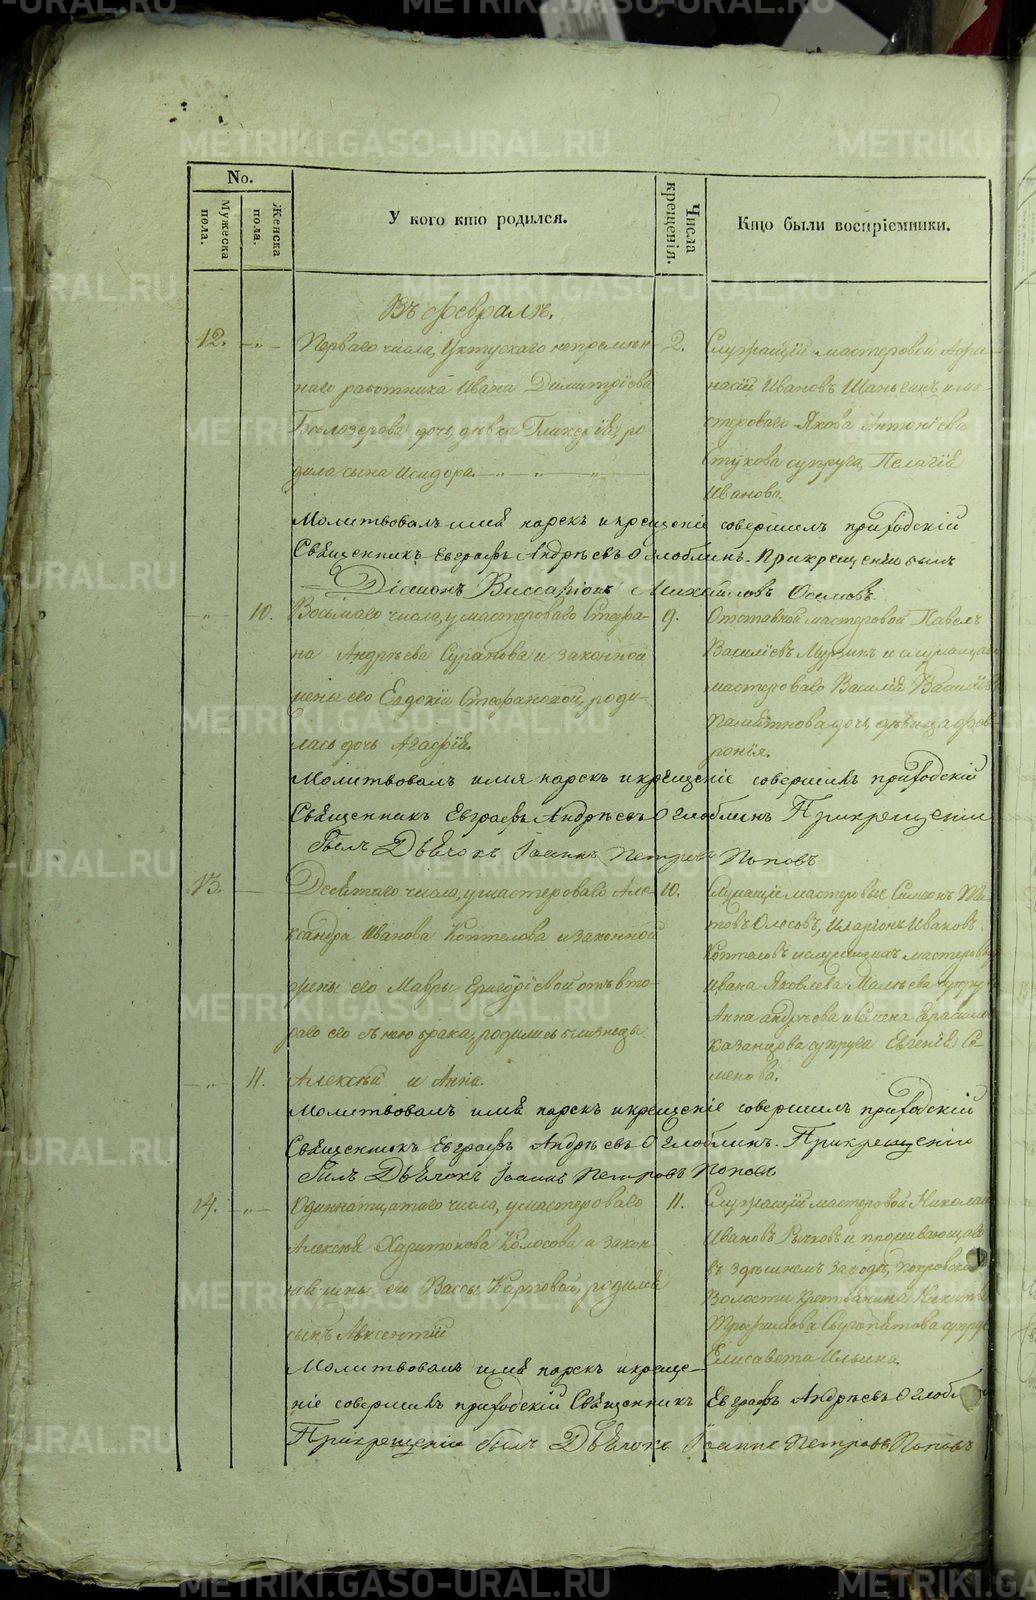 METRIKI.GASO-URAL.RU
No.
Мужеска пола.
Женска пола.
У кого кто родился.
Числа крещенія.
Кто были воспріемники.
Въ февралѣ.
12. Перваго числа, Уктускаго непремѣн-
наго работника Ивана Димитріева
Бѣлозерова дочь, дѣвка Гликерія, ро
дила сына Исидора.
2.
Служащій мастеровой Афа-
насій Ивановъ и ма-
стероваго Якова Антоніева
супруга, Пелагія
Иванова.
Молитвовалъ имя нарекъ и крещеніе совершилъ приходскій
Священникъ Евграфъ Андрѣевъ Оглоблинъ. При крещеніи былъ
Діаконъ Виссаріонъ Михайловъ Осмовъ.
10. Восьмаго числа, у мастероваго Стефа-
на Андрѣева и законной
жены его Евдокіи Стефановой, роди-
лась дочь Агафія.
9.
Отставной мастеровой Павелъ
Василіевъ Мурзинъ и служащаго
мастероваго Василія
дочь, дѣвица Фев-
ронія.
Молитвовалъ имя нарекъ и крещеніе совершилъ приходскій
Священникъ Евграфъ Андрѣевъ Оглоблинъ При крещеніи
былъ Дьячокъ Іоаннъ Петровъ Поповъ
13. Десятаго числа, у мастероваго Але-
ксандра Иванова Коптелова и законной
жены его Мавры Григоріевой отъ вто-
раго его съ нею брака, родились близнецы
11. Алексѣй и Анна.
10.
Служащіе мастеровые Симеонъ Ти-
товъ Иларіонъ Ивановъ
Коптеловъ и служащихъ мастеровыхъ
Ивана Яковлева супруга
Анна Андрѣева и
Казанцова супруга Евгенія Се-
менова.
Молитвовалъ имя нарекъ и крещеніе совершилъ приходскій
Священникъ Евграфъ Андрѣевъ Оглоблинъ. При крещеніи
былъ Дьячокъ Іоаннъ Петровъ Поповъ
14. Одиннатцатаго числа, у мастероваго
Алексѣя Харитонова Колосова и закон-
ной жены его Вассы Карповой, родился
сынъ Авксентій
11.
Служащій мастеровой Николай
Ивановъ и проживающаго
въ здѣшнемъ заводѣ, Покровской
Волости Крестьянина Никиты
Трофимова супруга
Елисавета Ильина.
Молитвовалъ имя нарекъ и креще-
ніе совершилъ приходскій Священникъ Евграфъ Андрѣевъ Оглоблинъ
При крещеніи былъ Дьячокъ Іоаннъ Петровъ Поповъ